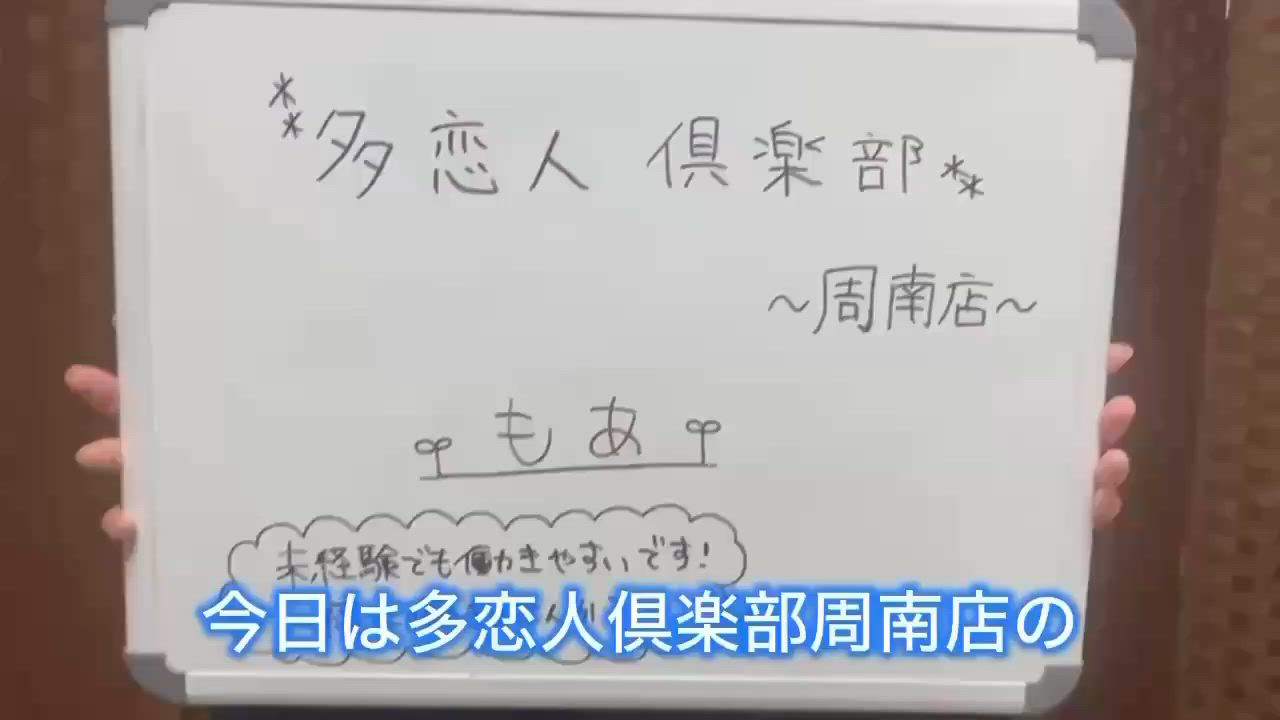 **多恋人倶楽部**
~周南店~
もあ
未経験でも働きやすいです!
今日は多恋人倶楽部周南店の